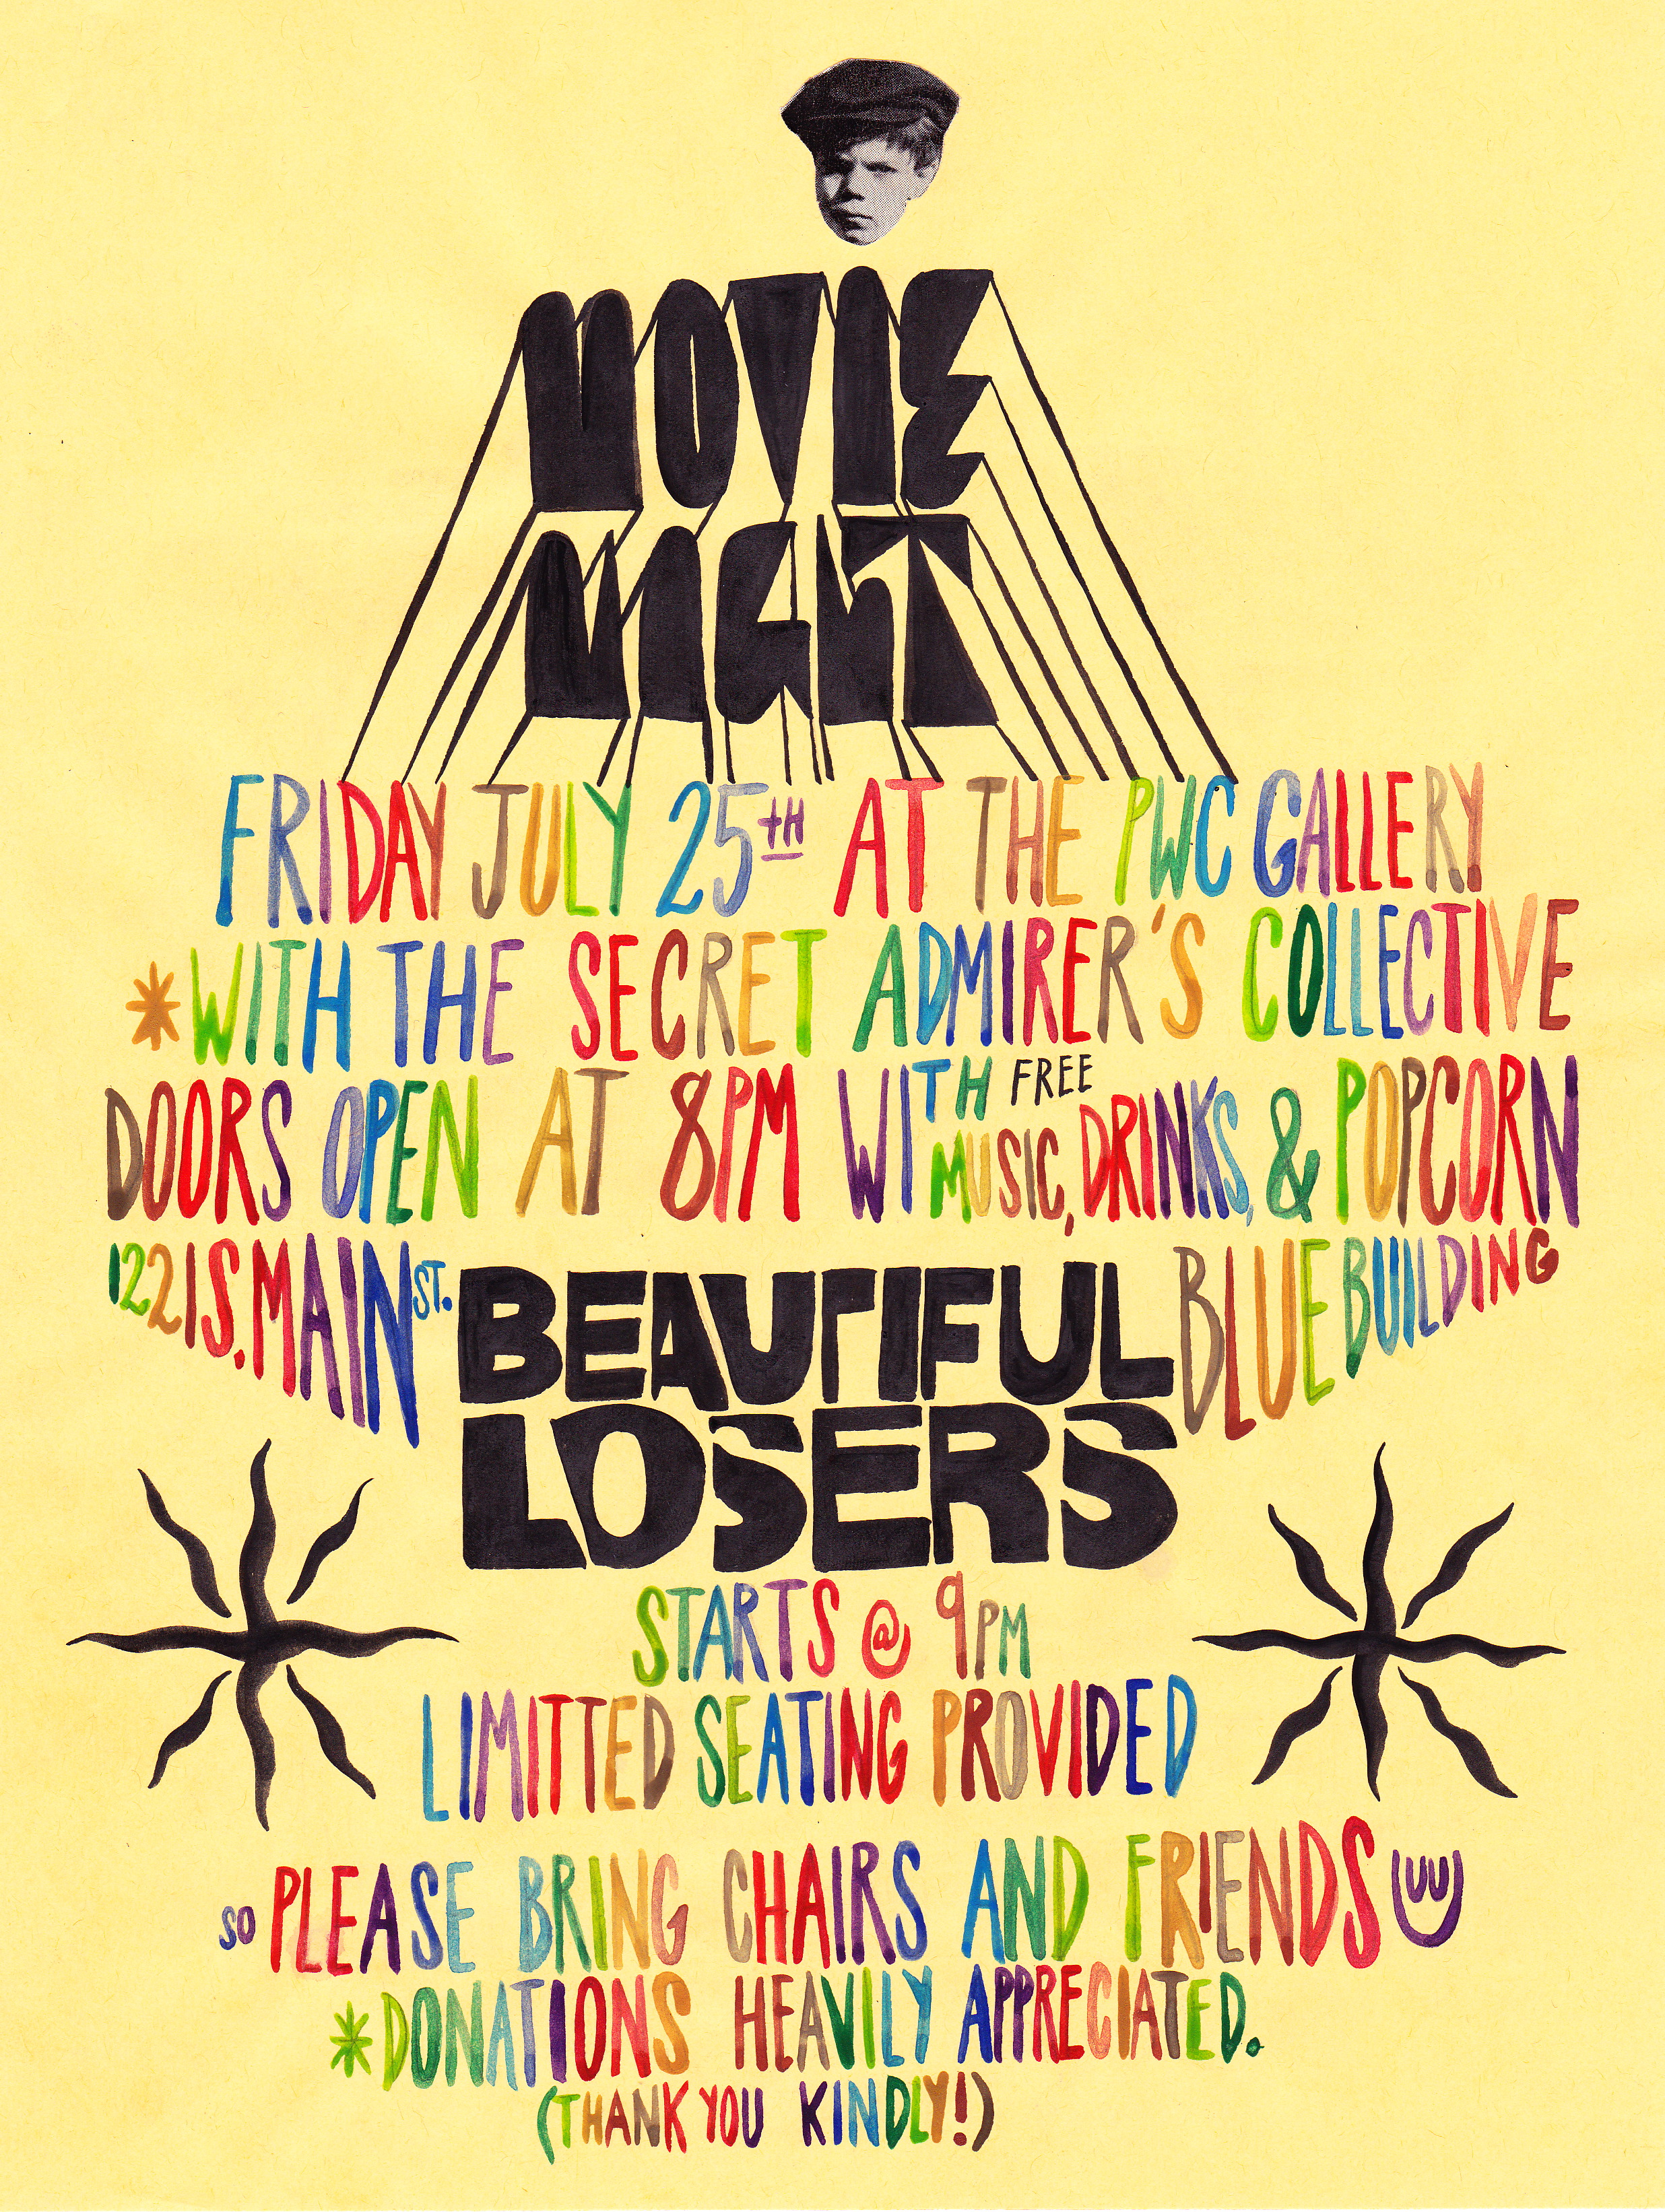 MOVIE
NIGHT
FRIDAY JULY 25TH AT THE PWC GALLERY
*WITH THE SECRET ADMIRER'S COLLECTIVE
DOORS OPEN AT 8PM WITH FREE MUSIC, DRINKS, & POPCORN
1221 S. MAIN ST.
BEAUTIFUL
LOSERS
BLUE BUILDING
STARTS @ 9PM
LIMITTED SEATING PROVIDED
SO PLEASE BRING CHAIRS AND FRIENDS
*DONATIONS HEAVILY APPRECIATED.
(THANK YOU KINDLY!)